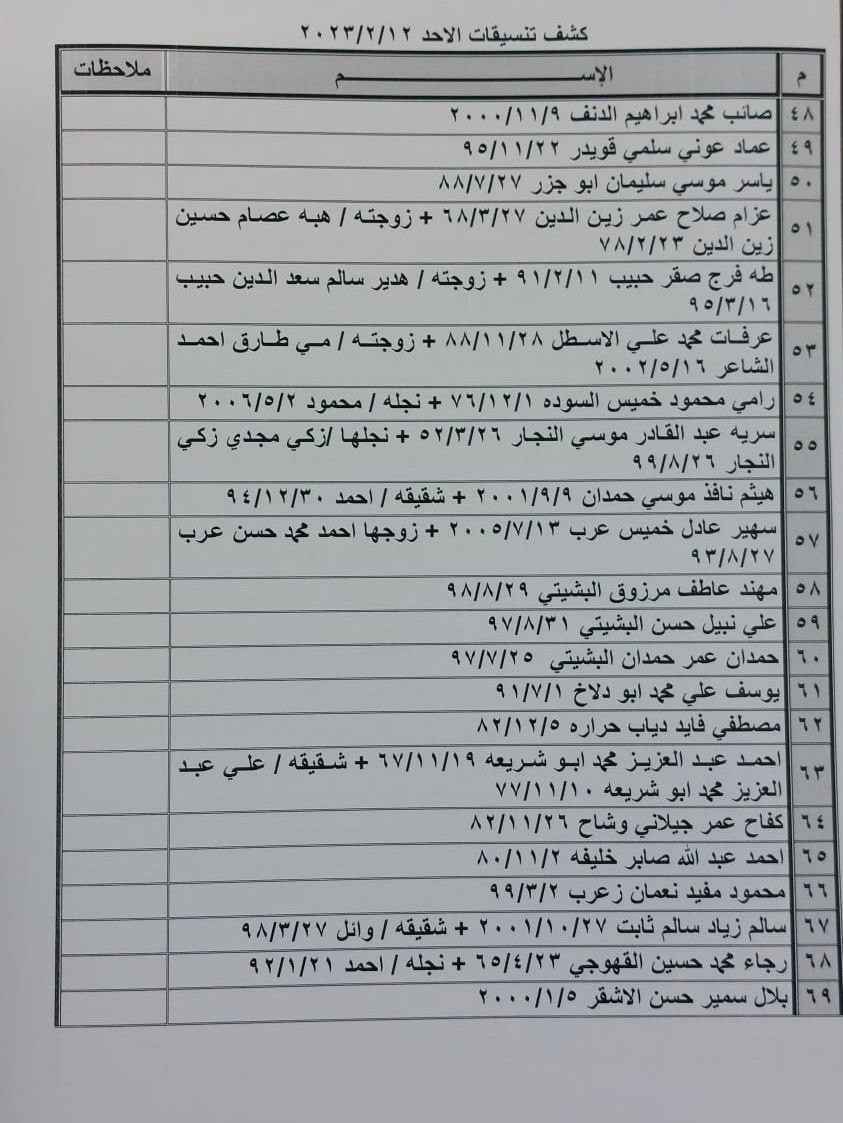 كشف تنسيقات الاحد ٢٠٢٣/٢/١٢
م الإســـــم ملاحظات
٤٨ صائب محمد ابراهيم الدنف ٢٠٠٠/١١/٩
٤٩ عماد عوني سلمي قويدر ٩٥/١١/٢٢
٥٠ ياسر موسي سليمان ابو جزر ٨٨/٧/٢٧
٥١ عزام صلاح عمر زين الدين ٦٨/٣/٢٧ + زوجته / هبه عصام حسين
زين الدين ٧٨/٢/٢٣
٥٢ طه فرج صقر حبيب ٩١/٢/١١ + زوجته / هدير سالم سعد الدين حبيب
٩٥/٣/١٦
٥٣ عرفات محمد علي الاسطل ٨٨/١١/٢٨ + زوجته / مي طارق احمد
الشاعر ٢٠٠٢/٥/١٦
٥٤ رامي محمود خميس السوده ٧٦/١٢/١ + نجله / محمود ٢٠٠٦/٥/٢
٥٥ سريه عبد القادر موسي النجار ٥٢/٣/٢٦ + نجلها /زكي مجدي زكي
النجار ٩٩/٨/٢٦
٥٦ هيثم نافذ موسي حمدان ٢٠٠١/٩/٩ + شقيقه / احمد ٩٤/١٢/٣٠
٥٧ سهير عادل خميس عرب ٢٠٠٥/٧/١٣ + زوجها احمد محمد حسن عرب
٩٣/٨/٢٧
٥٨ مهند عاطف مرزوق البشيتي ٩٨/٨/٢٩
٥٩ علي نبيل حسن البشيتي ٩٧/٨/٣١
٦٠ حمدان عمر حمدان البشيتي ٩٧/٧/٢٥
٦١ يوسف علي محمد ابو دلاخ ٩١/٧/١
٦٢ مصطفي فايد دياب حراره ٨٢/١٢/٥
٦٣ احمد عبد العزيز محمد ابو شريعه ٦٧/١١/١٩ + شقيقه / علي عبد
العزيز محمد ابو شريعه ٧٧/١١/١٠
٦٤ كفاح عمر جيلاني وشاح ٨٢/١١/٢٦
٦٥ احمد عبد الله صابر خليفه ٨٠/١١/٢
٦٦ محمود مفيد نعمان زعرب ٩٩/٣/٢
٦٧ سالم زياد سالم ثابت ٢٠٠١/١٠/٢٧ + شقيقه / وائل ٩٨/٣/٢٧
٦٨ رجاء محمد حسين القهوجي ٦٥/٤/٢٣ + نجله / احمد ٩٢/١/٢١
٦٩ بلال سمير حسن الاشقر ٢٠٠٠/١/٥